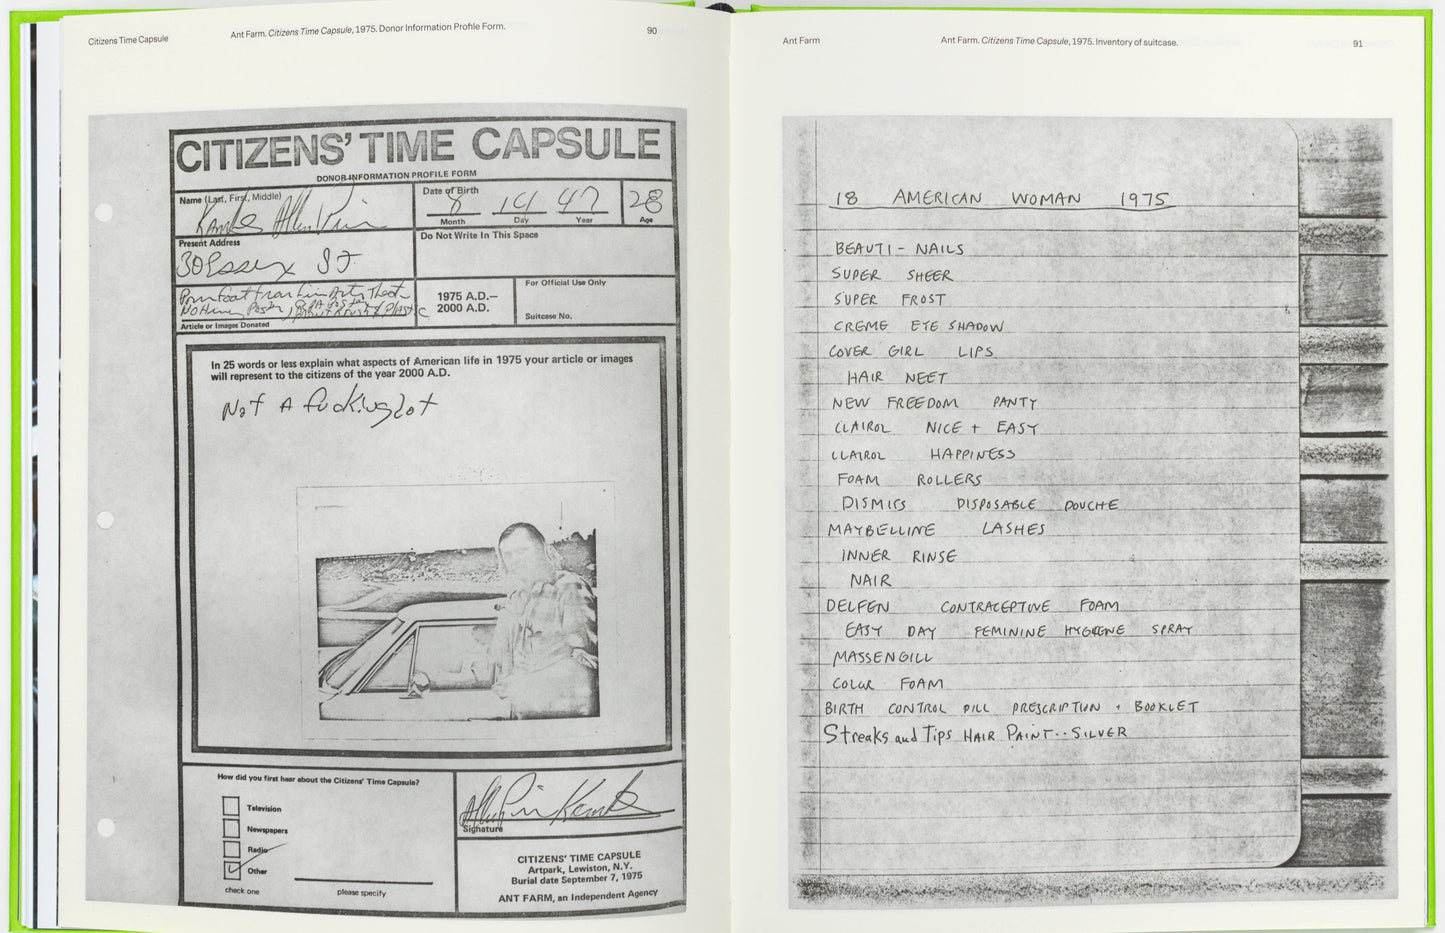 Citizens Time Capsule
Ant Farm. Citizens Time Capsule, 1975. Donor Information Profile Form.
90
CITIZENS' TIME CAPSULE
DONOR INFORMATION PROFILE FORM
Name (Last, First, Middle)
Date of Birth
8 14 47
Month Day Year
28
Age
Present Address
30 Essex ST
Do Not Write In This Space
Nothing Poster
Article or Images Donated
1975 A.D.—
2000 A.D.
For Official Use Only
Suitcase No.
In 25 words or less explain what aspects of American life in 1975 your article or images
will represent to the citizens of the year 2000 A.D.
Not A fucking lot
How did you first hear about the Citizens' Time Capsule?
Television
Newspapers
Radio
Other
check one
please specify
Signature
CITIZENS' TIME CAPSULE
Artpark, Lewiston, N.Y.
Burial date September 7, 1975
ANT FARM, an Independent Agency
Ant Farm
Ant Farm. Citizens Time Capsule, 1975. Inventory of suitcase.
91
18 AMERICAN WOMAN 1975
BEAUTI-NAILS
SUPER SHEER
SUPER FROST
CREME EYE SHADOW
COVER GIRL LIPS
HAIR NEET
NEW FREEDOM PANTY
CLAIROL NICE + EASY
CLAIROL HAPPINESS
FOAM ROLLERS
DISMISS DISPOSABLE DOUCHE
MAYBELLINE LASHES
INNER RINSE
NAIR
DELFEN CONTRACEPTIVE FOAM
EASY DAY FEMININE HYGIENE SPRAY
MASSENGILL
COLOR FOAM
BIRTH CONTROL PILL PRESCRIPTION + BOOKLET
Streaks and Tips HAIR PAINT.. SILVER